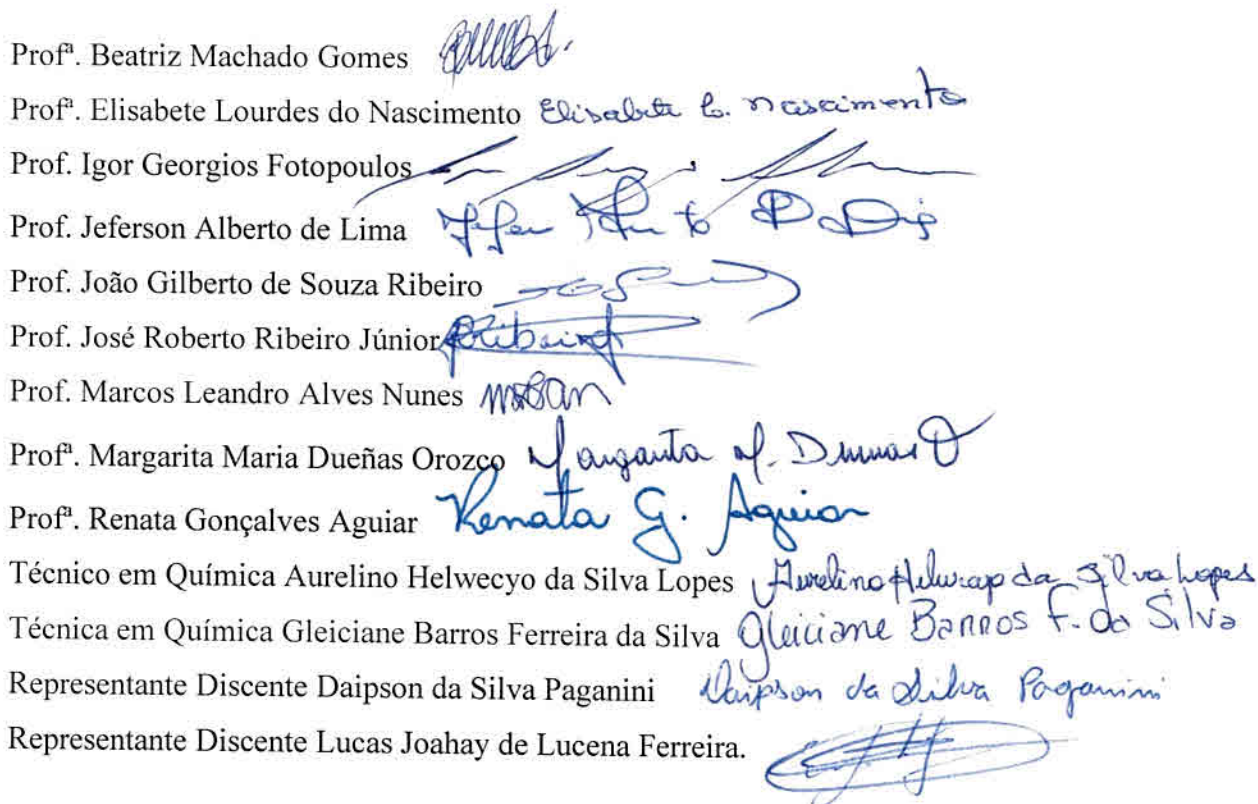 Profª. Beatriz Machado Gomes
Profª. Elisabete Lourdes do Nascimento Elisabete L. Nascimento
Prof. Igor Georgios Fotopoulos
Prof. Jeferson Alberto de Lima
Prof. João Gilberto de Souza Ribeiro
Prof. José Roberto Ribeiro Júnior
Prof. Marcos Leandro Alves Nunes
Profª. Margarita Maria Dueñas Orozco Margarita M. Dueñas O
Profª. Renata Gonçalves Aguiar Renata G. Aguiar
Técnico em Química Aurelino Helwecyo da Silva Lopes Aurelino Helwecyo da Silva Lopes
Técnica em Química Gleiciane Barros Ferreira da Silva Gleiciane Barros F. da Silva
Representante Discente Daipson da Silva Paganini Daipson da Silva Paganini
Representante Discente Lucas Joahay de Lucena Ferreira.